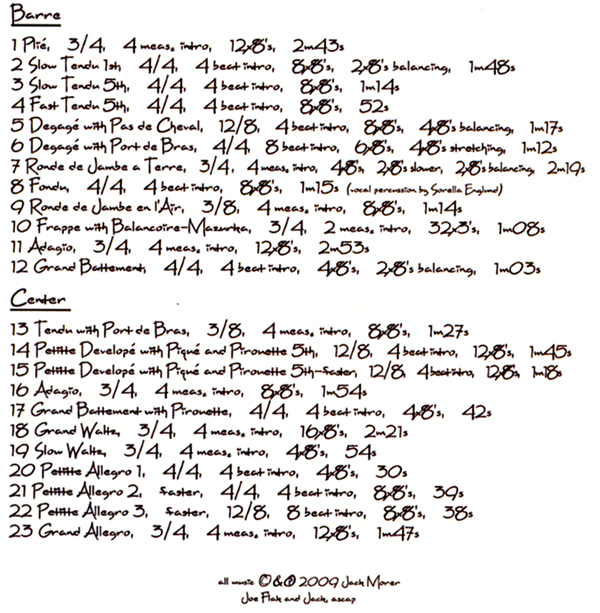 Barre
1 Plié, 3/4, 4 meas. intro, 12x8's, 2m43s
2 Slow Tendu 1st, 4/4, 4 beat intro, 8x8's, 2x8's balancing, 1m48s
3 Slow Tendu 5th, 4/4, 4 beat intro, 8x8's, 1m14s
4 Fast Tendu 5th, 4/4, 4 beat intro, 8x8's, 52s
5 Degagé with Pas de Cheval, 12/8, 4 beat intro, 8x8's, 4x8's balancing, 1m17s
6 Degagé with Port de Bras, 4/4, 8 beat intro, 6x8's, 4x8's stretching, 1m12s
7 Ronde de Jambe a Terre, 3/4, 4 meas. intro, 4x8's, 2x8's slower, 2x8's balancing, 2m19s
8 Fondu, 4/4, 4 beat intro, 8x8's, 1m15s (vocal percussion by Sorella Englund)
9 Ronde de Jambe en l'Air, 3/8, 4 meas. intro, 8x8's, 1m14s
10 Frappe with Balancoire-Mazurka, 3/4, 2 meas. intro, 32x3's, 1m08s
11 Adagio, 3/4, 4 meas. intro, 12x8's, 2m53s
12 Grand Battement, 4/4, 4 beat intro, 4x8's, 2x8's balancing, 1m03s
Center
13 Tendu with Port de Bras, 3/8, 4 meas. intro, 8x8's, 1m27s
14 Petitte Developé with Piqué and Pirouette 5th, 12/8, 4 beat intro, 12x8's, 1m45s
15 Petitte Developé with Piqué and Pirouette 5th-faster, 12/8, 4 beat intro, 12x8's, 1m18s
16 Adagio, 3/4, 4 meas. intro, 8x8's, 1m54s
17 Grand Battement with Pirouette, 4/4, 4 beat intro, 4x8's, 42s
18 Grand Waltz, 3/4, 4 meas. intro, 16x8's, 2m21s
19 Slow Waltz, 3/4, 4 meas. intro, 4x8's, 54s
20 Petitte Allegro 1, 4/4, 4 beat intro, 4x8's, 30s
21 Petitte Allegro 2, faster, 4/4, 4 beat intro, 8x8's, 39s
22 Petitte Allegro 3, faster, 12/8, 8 beat intro, 8x8's, 38s
23 Grand Allegro, 3/4, 4 meas. intro, 12x8's, 1m47s
all music © & ℗ 2009 Jack Moter
Joe Flak and Jack, ascap